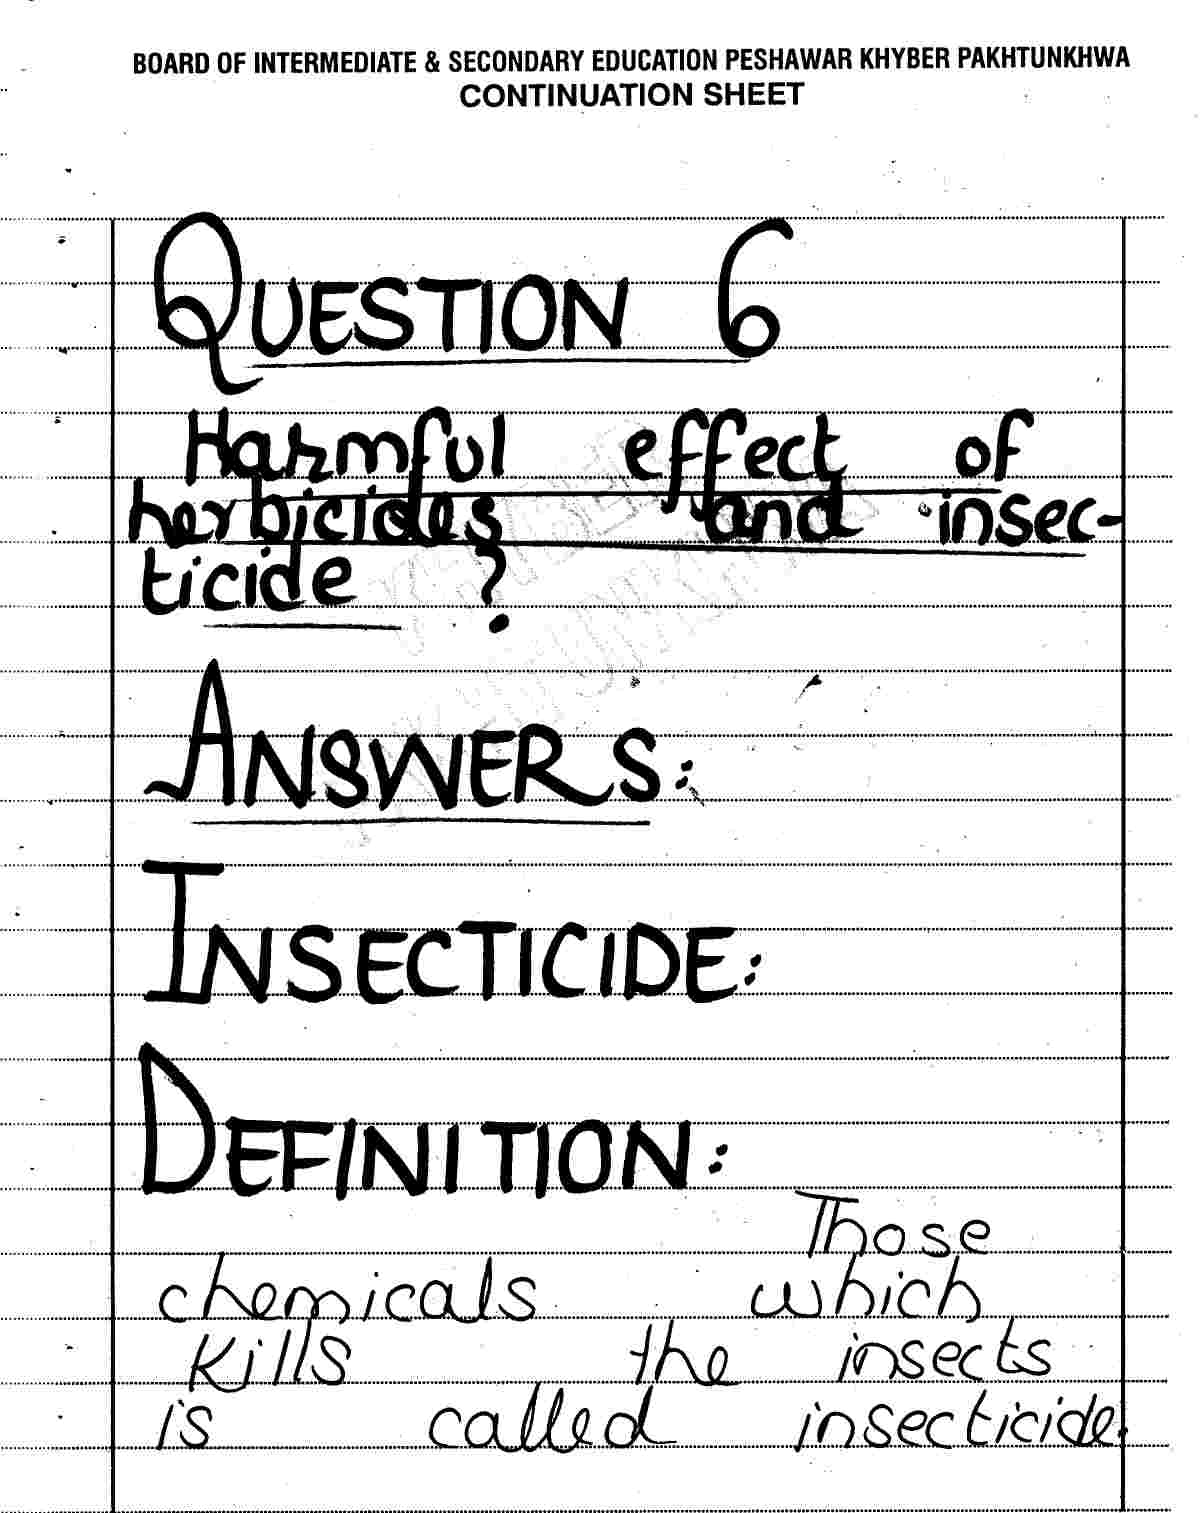 BOARD OF INTERMEDIATE & SECONDARY EDUCATION PESHAWAR KHYBER PAKHTUNKHWA
CONTINUATION SHEET
QUESTION 6
Harmful effect of
herbicides and insec-
ticide ?
ANSWERS:
INSECTICIDE:
DEFINITION:
Those
chemicals which
kills the insects
is called insecticide.